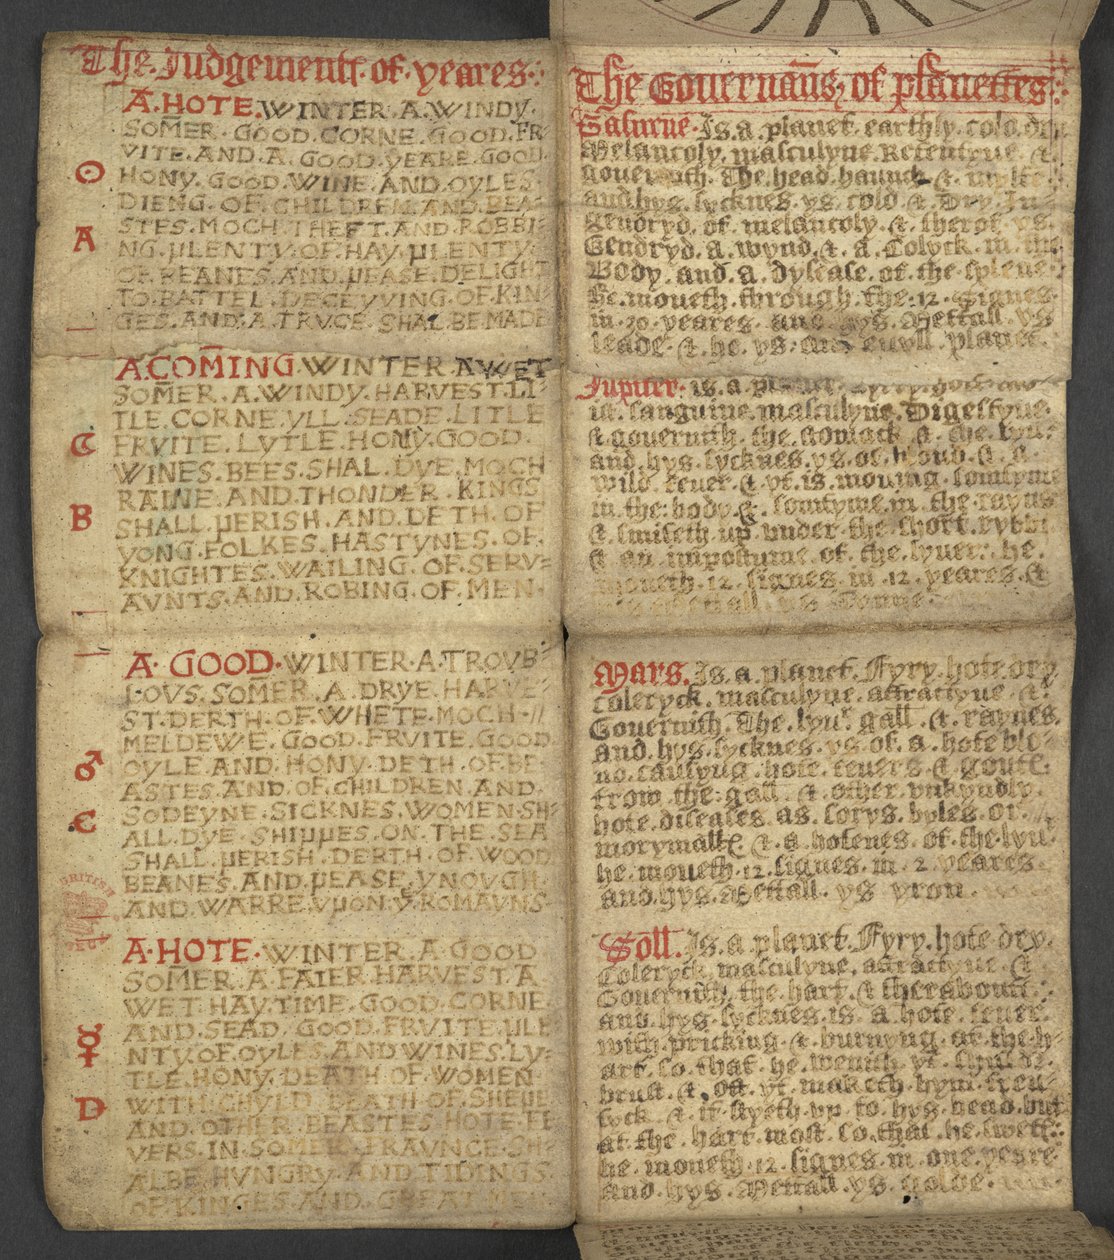 The · Judgementꝭ · of · yeares ·:
A. HOTE. WINTER. A. WINDY.
SOM̄ER · GOOD. CORNE. GOOD. FR-
VITE. AND. A. GOOD. YEARE. GOOD.
☉
HONY. GOOD. WINE. AND. OYLES.
DIENG. OF. CHILDREN. AND. BEA-
A
STES. MOCH. THEFT. AND. ROBBI-
NG. PLENTY. OF. HAY. PLENTY.
OF. BEANES. AND. PEASE. DELIGHT
TO. BATTEL. DECEYVING. OF. KIN-
GES. AND. A. TRVCE. SHAL. BE. MADE
A. COM̄ING. WINTER. A. WET
SOM̄ER. A. WINDY. HARVEST. LI-
TLE. CORNE. YLL. SEADE. LITLE
☾
FRVITE. LYTLE. HONY. GOOD.
WINES. BEES. SHAL. DYE. MOCH
RAINE. AND. THONDER. KINGS
B
SHALL. PERISH. AND. DETH. OF
YONG. FOLKES. HASTYNES. OF.
KNIGHTES. WAILING. OF. SERV-
AVNTS. AND. ROBING. OF. MEN.
A. GOOD. WINTER. A. TROVB-
LOVS. SOM̄ER. A. DRYE. HARVE-
ST. DERTH. OF. WHETE. MOCH //
MELDEWE. GOOD. FRVITE. GOOD
♂
OYLE. AND. HONY. DETH. OF. BE
ASTES. AND. OF. CHILDREN. AND.
C
SODEYNE. SICKNES. WOMEN. SH-
ALL. DYE. SHIPPES. ON. THE. SEA
SHALL. PERISH. DERTH. OF. WOOD
BEANES. AND. PEASE. YNOVGH.
AND. WARRE. VPON. Yͤ. ROMAVNS
BRITISH
A. HOTE. WINTER. A. GOOD
SOM̄ER. A. FAIER. HARVEST. A
WET. HAY. TIME. GOOD. CORNE.
☿
AND. SEAD. GOOD. FRVITE. PLE
NTY. OF. OYLES. AND. WINES. LY-
TLE. HONY. DEATH. OF. WOMEN
D
WITH. CHYLD. DEATH. OF. SHEPE
AND. OTHER. BEASTES. HOTE. FE
VERS. IN. SOMER. FRAVNCE. SH-
ALBE. HVNGRY. AND. TIDINGS
OF. KINGES. AND. GREAT. MEN
The Gouernan̄s of planettes
Saturne. Is. a. planet. earthly. cold. dry
Melancoly. masculyne. Retentyue. &.
gouernith. The. head.
and. hys. lycknes. ys. cold. &. Dry. In-
gendryd. of. melancoly. &. therof. ys.
Gendryd. a. wynd. &. a. Colyck. in. the
Body. and. a. dysease. of. the. splene.
he. moueth. through. the. 12. Signes.
in. 30. yeares. and. hys. Mettall. ys
leade. &. he. ys. an. euyll. planet.
Jupiter. is. a. planet.
ue. sanguine. masculyne. Digestyue.
&. gouernith. the. stomack. &. the. lyu-
and. hys. lycknes. ys. of. bloud. &. a.
wild. feuer. &. yt. is. mouing. somtyme
in. the. body. &. somtyme. in. the. raynes
&. smiteth. up. vnder. the. short. rybbs.
&. an. impostume. of. the. lyuer. he.
moueth. 12. signes. in. 12. yeares. &
Mettall. ys. Tynne.
Mars. Is. a. planet. Fyry. hote. dry
coleryck. masculyne. attractyue. &.
Gouernith. The. lyuʳ. gall. &. raynes.
and. hys. lycknes. ys. of. a. hote. blo-
ud. causyng. hote. feuers. &. goute.
from. the. gall. &. other. vnkyndly.
hote. diseases. as. sorys. byles. or
morymallꝭ. &. a. hotenes. of. the. lyuʳ
he. moueth. 12. signes. in. 2. yeares
and. hys. Mettall. ys. yron.
Soll. Is. a. planet. Fyry. hote. dry.
Coleryck. masculyne. attractyue. &.
Gouernith. the. hart. &. therabouts.
and. hys. lycknes. is. a. hote. feuer.
with. pricking. &. burnyng. at. the. h-
art. so. that. he. wenith. yt. shuld.
brust. &. oft. yt. maketh. hym. fren-
syck. &. it. flyeth. vp. to. hys. head. but
at. the. hart. most. so. that. he. swets.
he. moueth. 12. signes. in. one. yeare.
and. hys. Mettall. ys. golde.